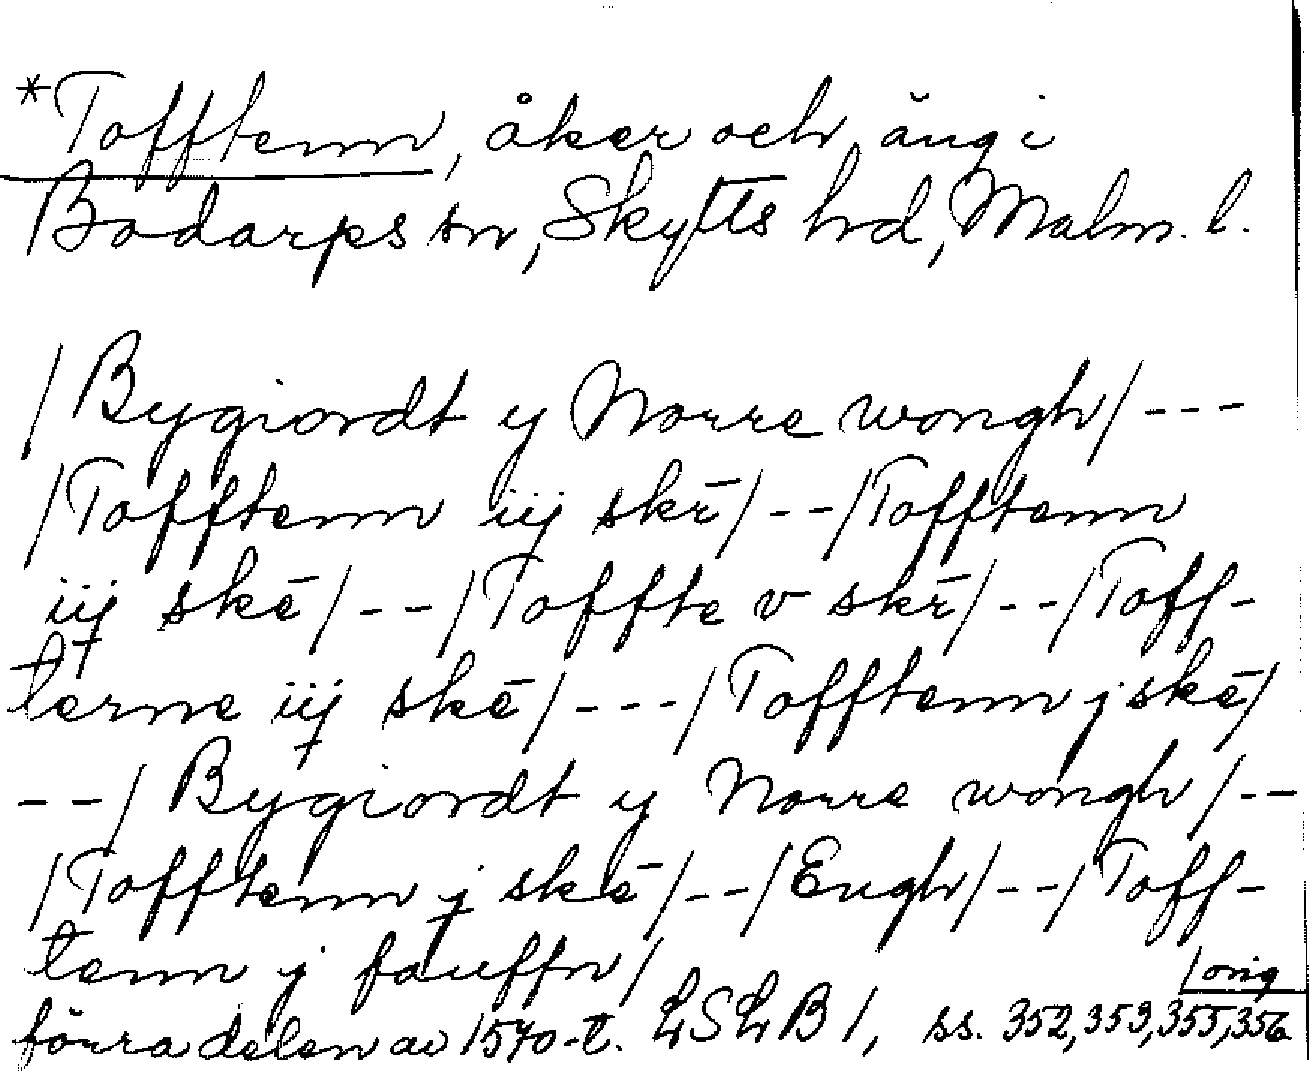 *Tofftenn, åker och äng i
Bodarps sn, Skytts hd, Malm. l.
/Bygiordt y Norre wongh/---
/Tofftenn iij skē/--/Tofftenn
iij skē/--/Toffte v skē/--/Toff-
terne iij skē/---/Tofftenn j skē/
--/Bygiordt y Norre wongh/--
/Tofftenn j skē/--/Engh/--/Toff-
tenn j fauffn/
/orig
förra delen av 1570-t. LSLB 1, ss. 352, 353, 355, 356